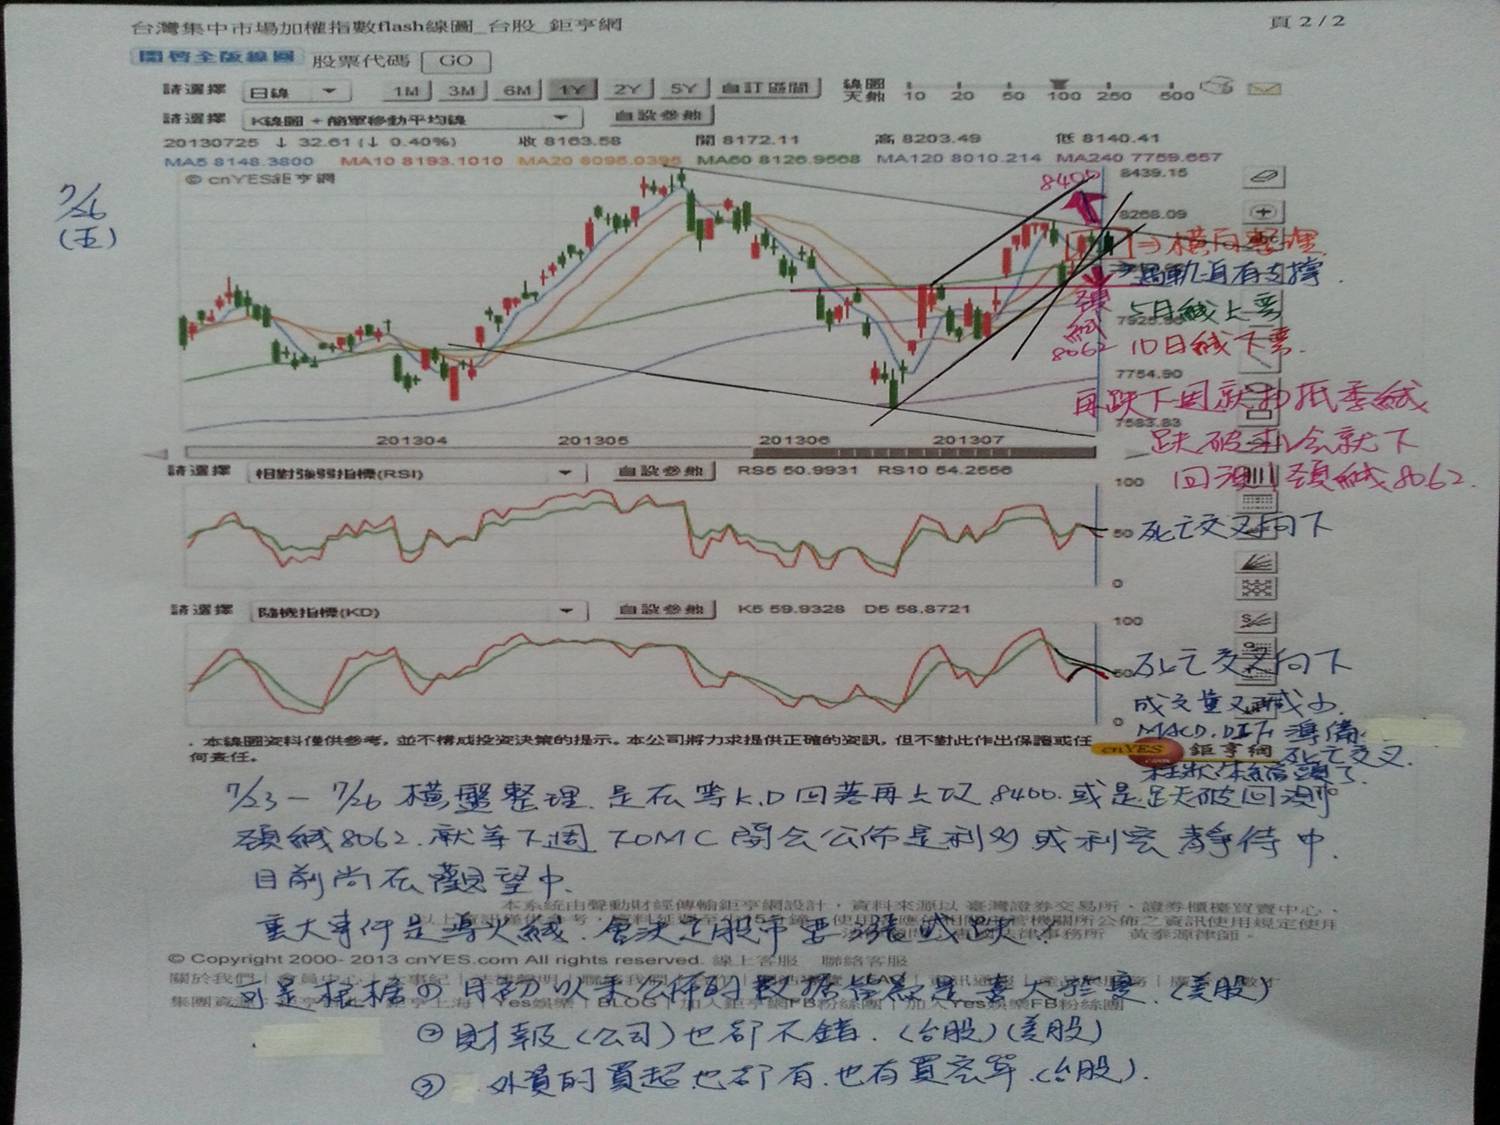 台灣集中市場加權指數flash線圖_台股_鉅亨網
頁 2 / 2
開啓全版線圖 股票代碼 GO
請選擇 日線 1M 3M 6M 1Y 2Y 5Y 自訂區間 線圖天數 10 20 50 100 250 500
請選擇 K線圖 + 簡單移動平均線 自設參數
20130725 ↓ 32.61 (↓ 0.40%) 收 8163.58 開 8172.11 高 8203.49 低 8140.41
MA5 8148.3800 MA10 8193.1010 MA20 8095.0395 MA60 8126.9568 MA120 8010.214 MA240 7759.657
© cnYES鉅亨網
8439.15
8400
8268.09
7/26
(五)
⇒橫向整理
軌道有支撐.
頸線8062
5日線上彎
7925.96
10日線下彎.
7754.90
再跌下周就扣抵季線
7583.83
跌破
回測頸線8062.
201304 201305 201306 201307
請選擇 相對強弱指標(RSI) 自設參數 RS5 50.9931 RS10 54.2556
100
50
0
死亡交叉向下
請選擇 隨機指標(KD) 自設參數 K5 59.9328 D5 58.8721
100
50
0
死亡交叉向下
成交量又減少.
MACD.DIF 準備
死亡交叉.
柱狀体縮頭了.
cnYES 鉅亨網
. 本線圖資料僅供參考, 並不構成投資決策的提示。本公司將力求提供正確的資訊, 但不對此作出保證或任
何責任。
7/23 - 7/26 橫盤整理.是在等K.D回落再上攻8400.或是跌破回測
頸線8062.就等下週FOMC開会公佈是利多或利空靜待中.
目前尚在觀望中.
本系統由聲動財經傳輸鉅亨網設計，資料來源以 臺灣證券交易所、證券櫃檯買賣中心、
重大事件是導火線.會決定股市要漲或跌.
© Copyright 2000- 2013 cnYES.com All rights reserved. 線上客服 聯絡客服
可是根據①月初以來公佈的數據皆說是（美股）
②財報(公司)也都不錯.(台股)(美股)
③ 外資的買超也都有.也有買空單.(台股).